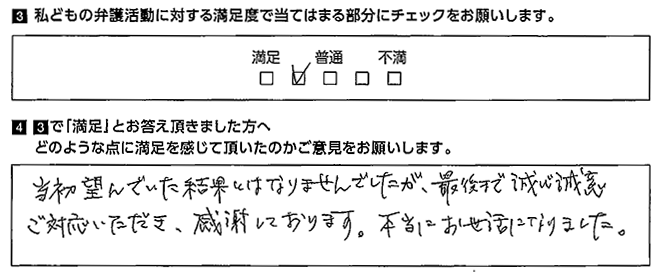 3 私どもの弁護活動に対する満足度で当てはまる部分にチェックをお願いします。
満足 普通 不満
□ ☑ □ □ □
4 3で「満足」とお答え頂きました方へ
どのような点に満足を感じて頂いたのかご意見をお願いします。
当初望んでいた結果とはなりませんでしたが、最後まで誠心誠意
ご対応いただき、感謝しております。本当にお世話になりました。